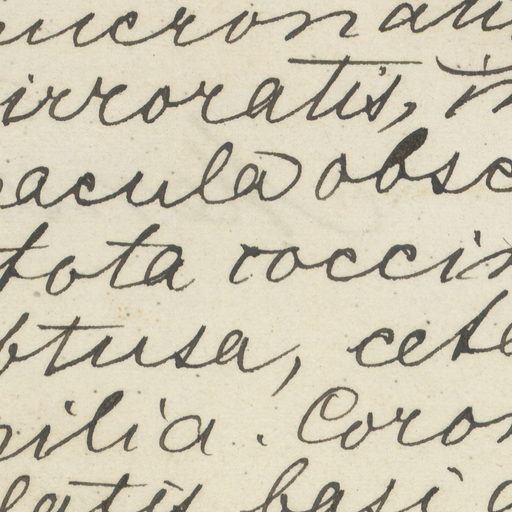 mucronatis
irroratis, in
macula obsc
tota coccin
btusa, cete
milia. Coro
latis basi